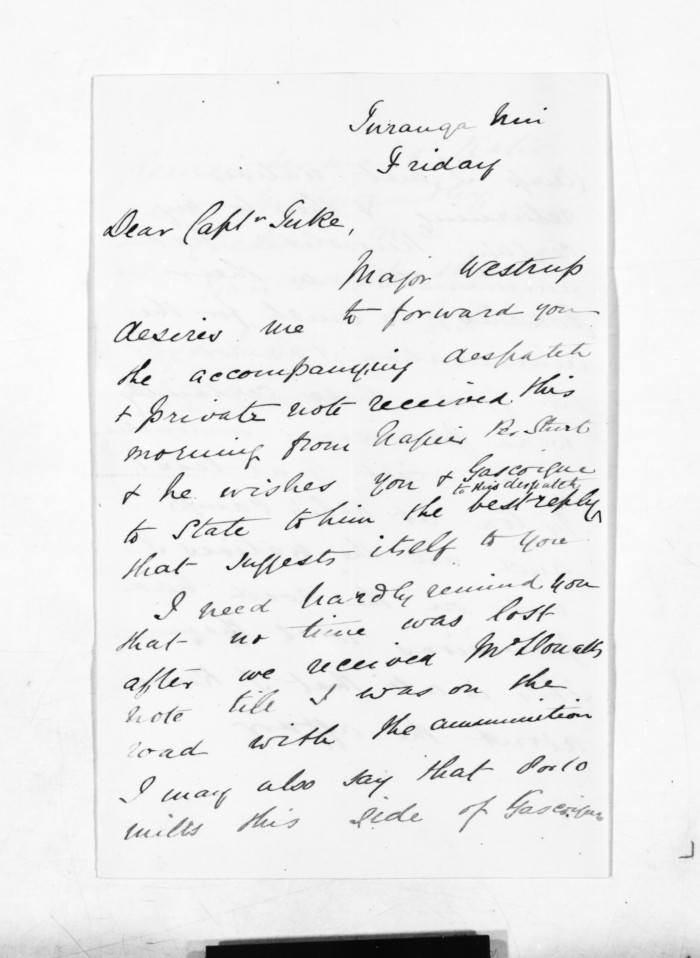 Turanga Nui
Friday
Dear Captn Tuke,
Major Westrup
desires me to forward you
the accompanying despatch
& private note received this
morning from Napier Per Sturt
& he wishes you & Gascoigne
to this despatch
to State to him the best reply
that suggests itself to you
I need hardly remind you
that no time was lost
after we received
note till I was on the
road with the ammunition
I may also say that 8 or 10
miles this side of Gascoigne